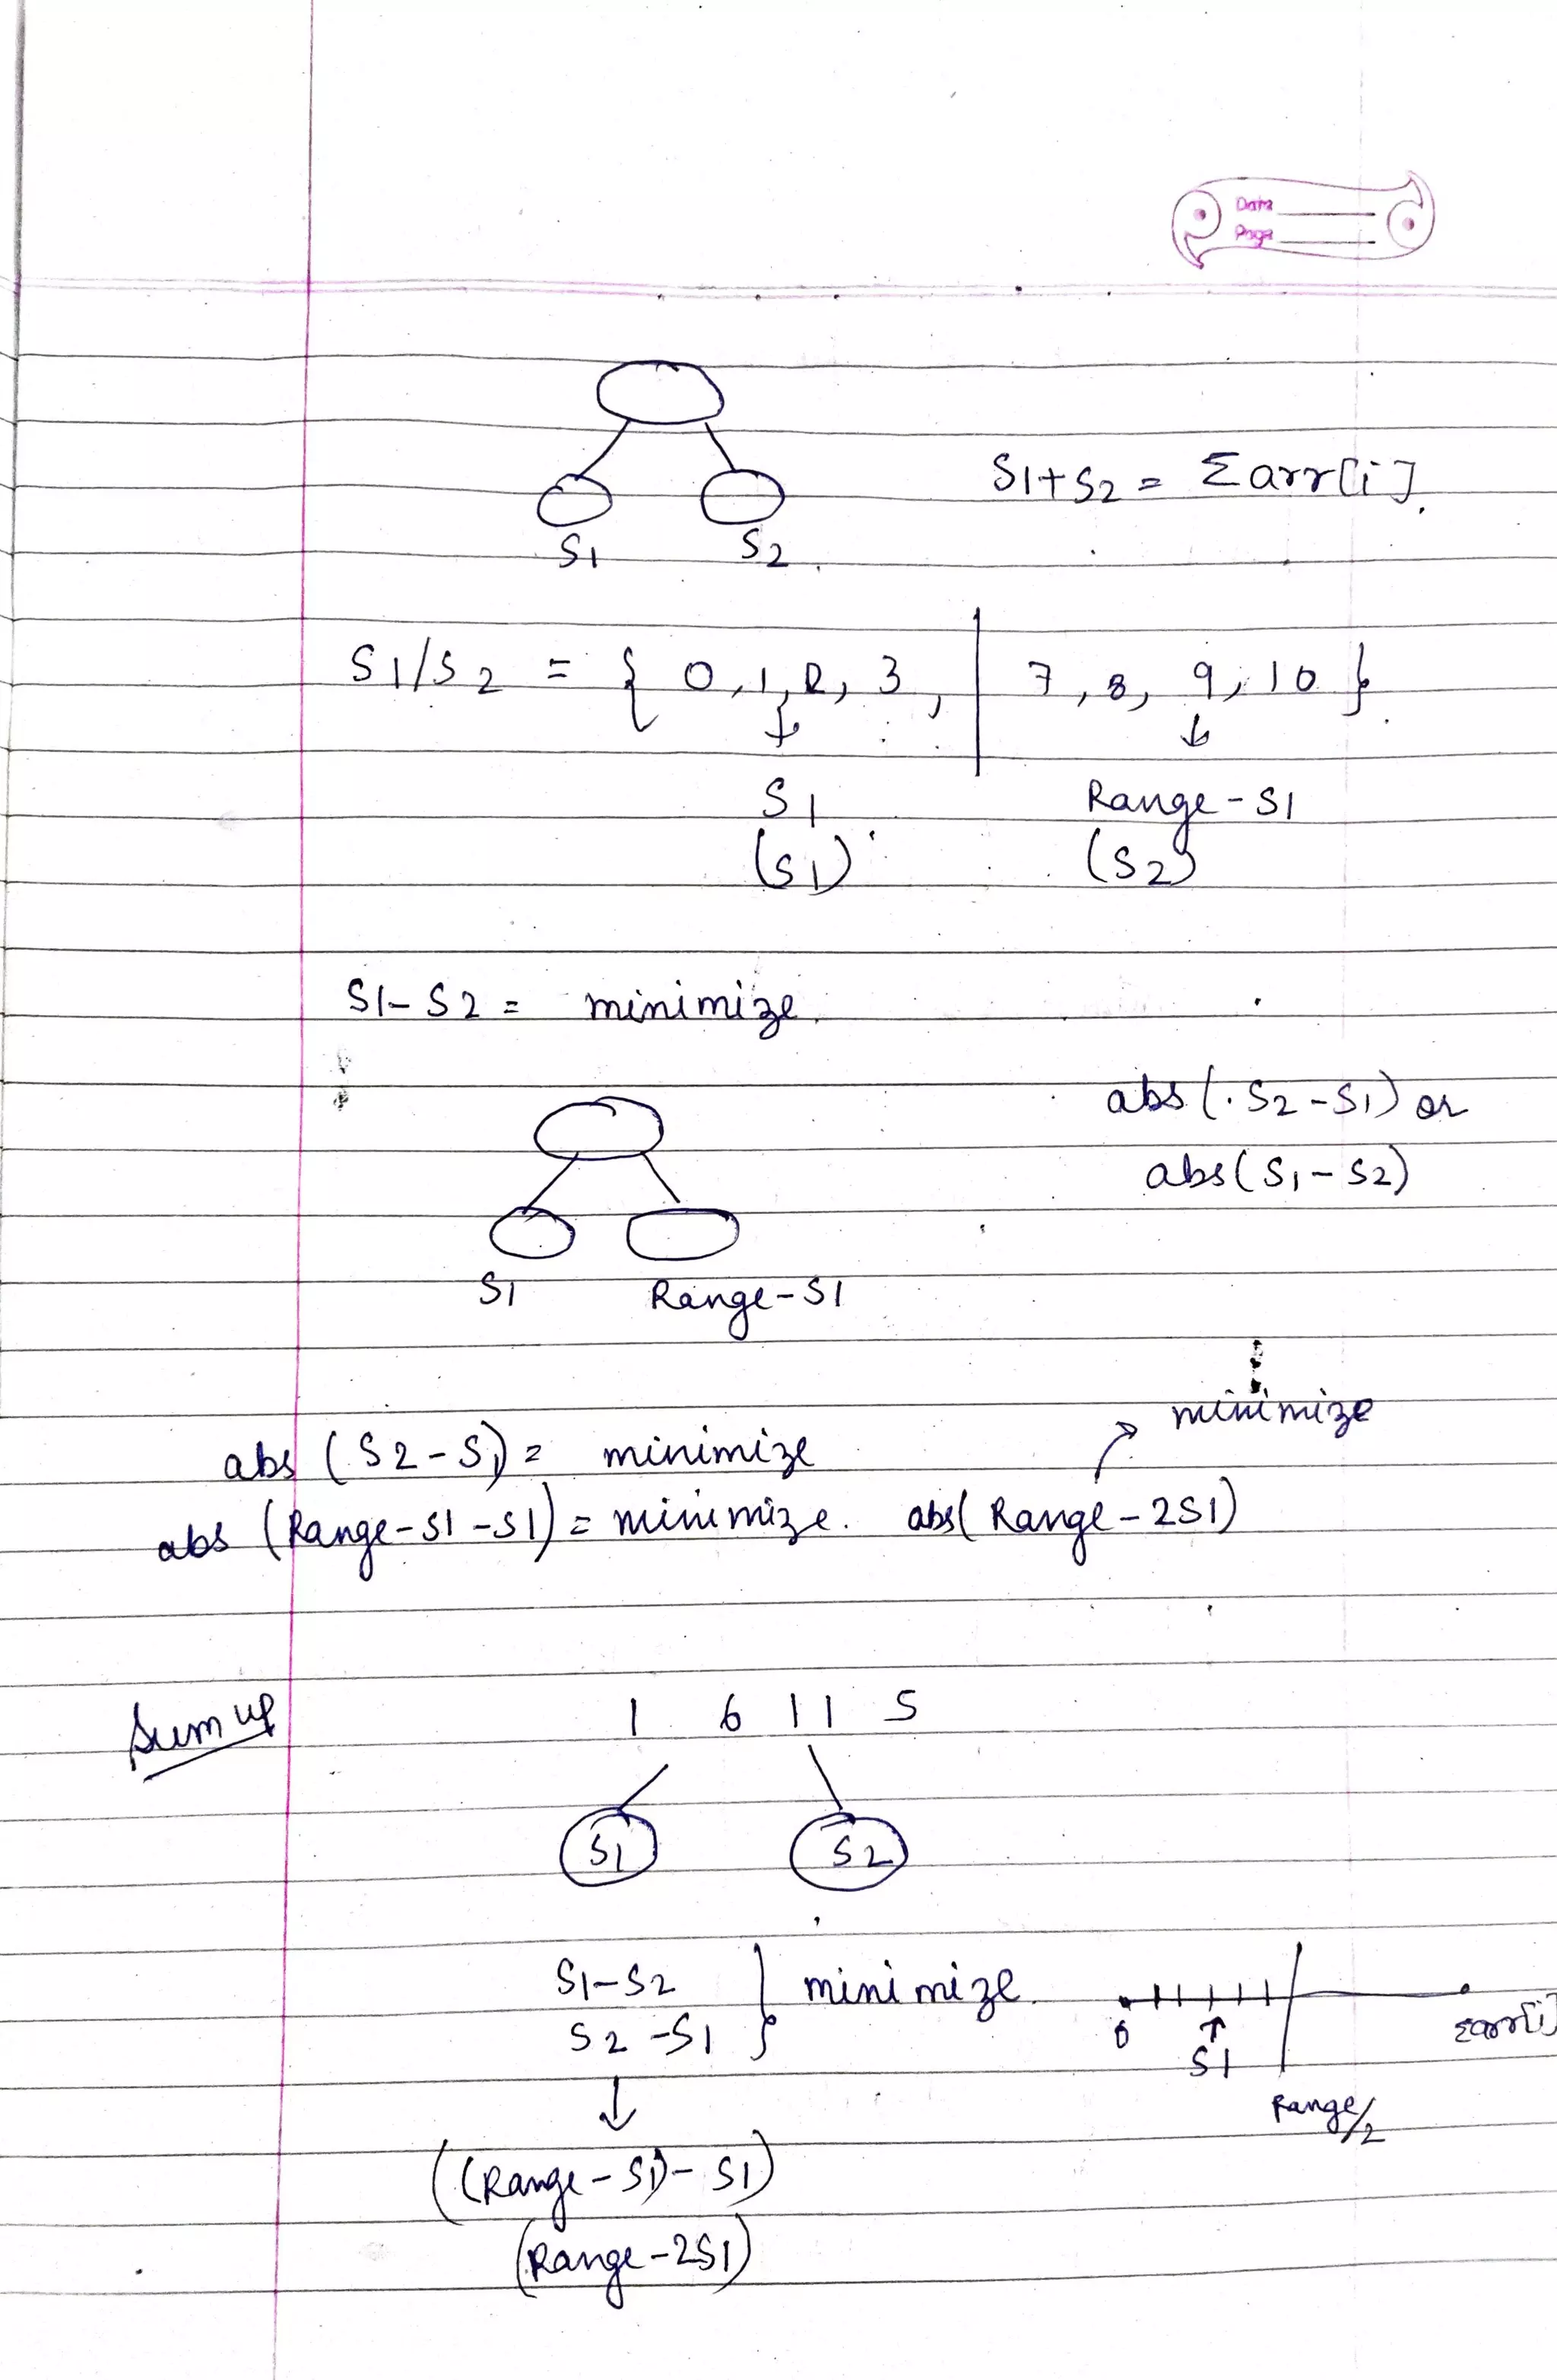 Data
Page
S1+S2 = Σarr[i].
S1 S2
S1/S2 = { 0, 1, 2, 3, | 7, 8, 9, 10 }
↓ ↓
S1 Range-S1
(S1) (S2)
S1-S2 = minimize.
abs(S2-S1) or
abs(S1-S2)
S1 Range-S1
minimize
abs (S2-S1) = minimize
abs (Range-S1-S1) = minimize. abs(Range-2S1)
Sum up
1 6 11 5
S1 S2
S1-S2 } minimize.
S2-S1
0 S1 Σarr[i]
Range/2
↓
((Range-S1)-S1)
(Range-2S1)